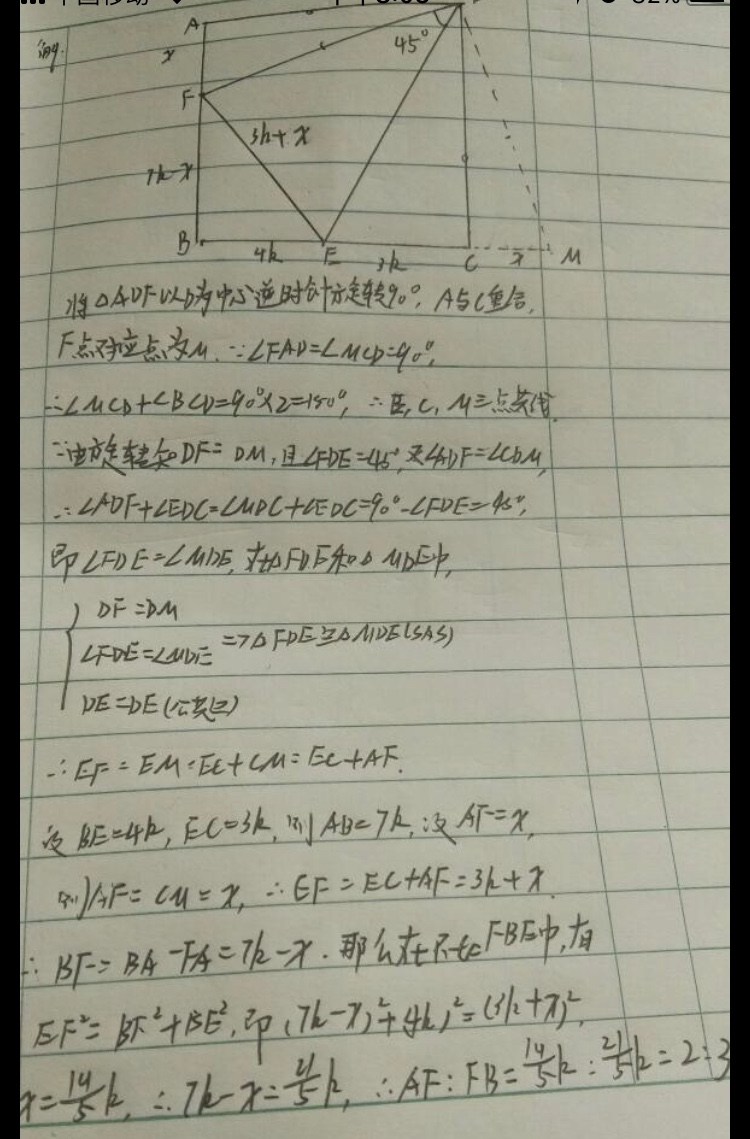 中国移动
52%
A
45°
x
F
3k+x
7k-x
B
4k
E
3k
C
x
M
将△ADF以D为中心逆时针旋转90°, A与C重合,
F点对应点为M. ∵∠FAD=∠MCD=90°,
∴∠MCD+∠BCD=90°×2=180°, ∴E, C, M三点共线.
∵由旋转知DF=DM, 且∠FDE=45°, 又∠ADF=∠CDM,
∴∠ADF+∠EDC=∠MDC+∠EDC=90°-∠FDE=45°,
即∠FDE=∠MDE, 在△FDE和△MDE中,
DF=DM
∠FDE=∠MDE => △FDE≌△MDE(SAS)
DE=DE(公共边)
∴EF=EM=EC+CM=EC+AF.
设BE=4k, EC=3k, 则AB=7k, 设AF=x,
则AF=CM=x, ∴EF=EC+AF=3k+x
∴BF=BA-FA=7k-x. 那么在Rt△FBE中, 有
EF²=BF²+BE², 即(7k-x)²+(4k)²=(3k+x)²,
x=14/5k, ∴7k-x=21/5k, ∴AF:FB=14/5k:21/5k=2:3